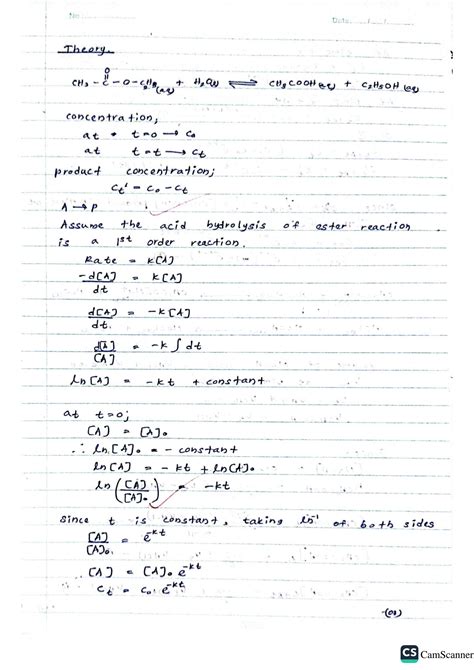 No
Date
Theory
CH₃ - C - O - C₂H₅(aq) + H₂O(l) ⇌ CH₃COOH(aq) + C₂H₅OH(aq)
O
concentration;
at t=0 → C₀
at t=t → Ct
product concentration;
Ct' = C₀ - Ct
A → P
Assume the acid hydrolysis of ester reaction
is a 1st order reaction.
Rate = k[A]
-d[A]/dt = k[A]
d[A]/dt = -k[A]
d[A]/[A] = -k ∫ dt
ln[A] = -kt + constant
at t=0;
[A] = [A]₀
∴ ln[A]₀ = - constant
ln[A] = -kt + ln[A]₀
ln([A]/[A]₀) = -kt
since t is constant, taking ln⁻¹ of both sides
[A]/[A]₀ = e^-kt
[A] = [A]₀ e^-kt
Ct = C₀ e^-kt
CS CamScanner